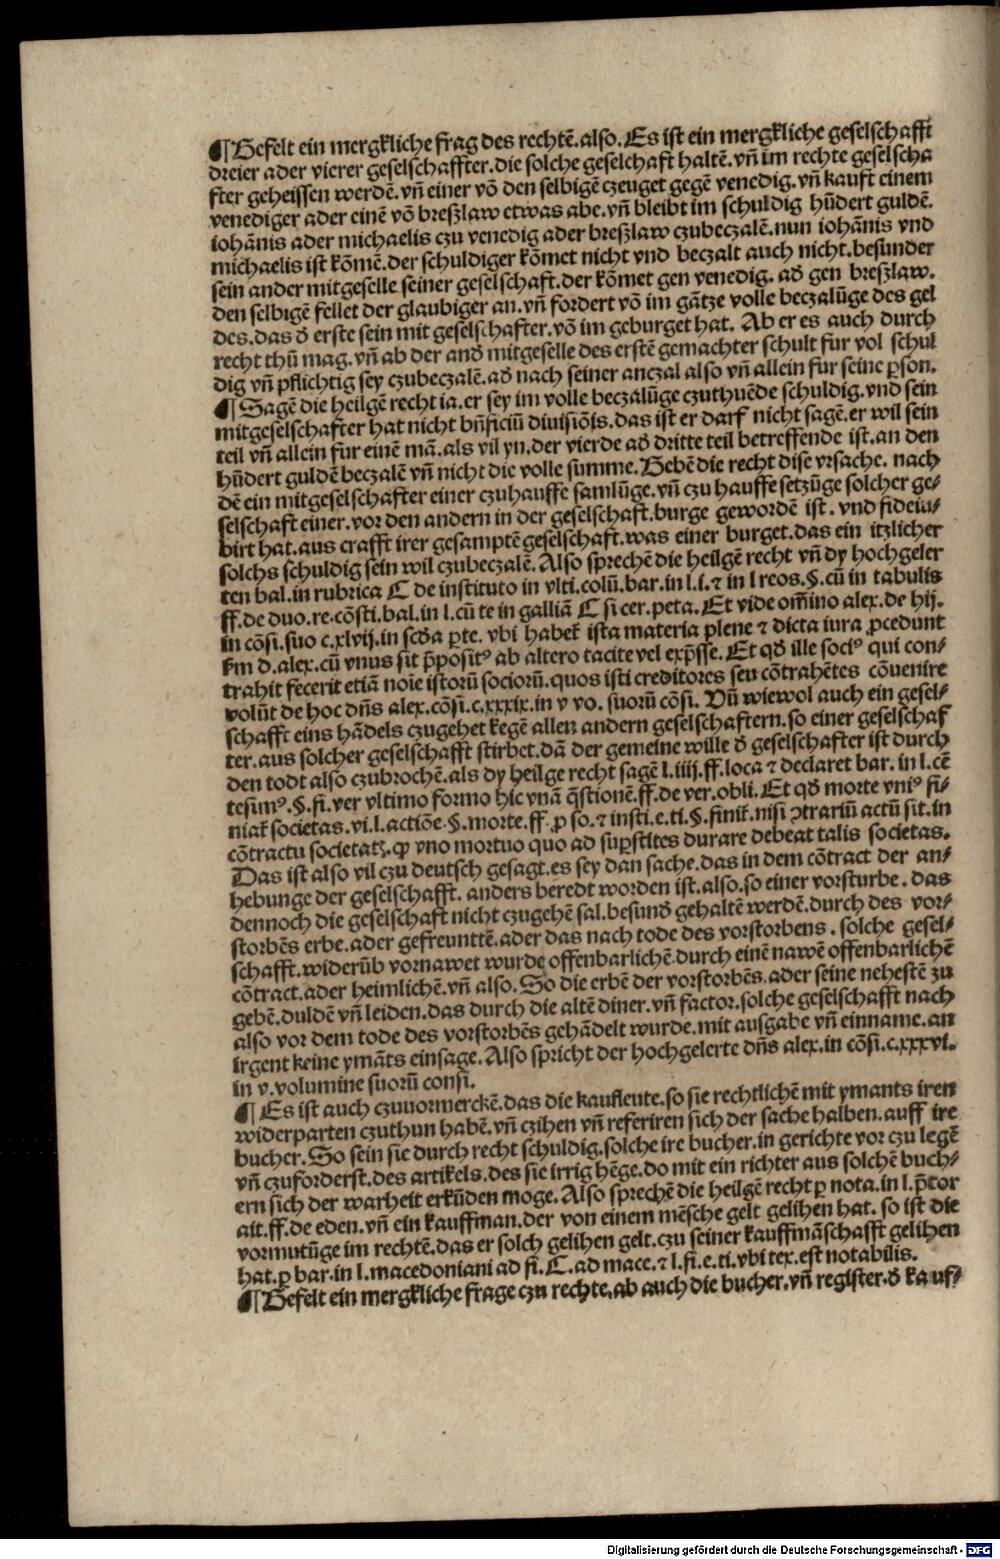 ¶ Gefelt ein mergkliche frag des rechtē. also. Es ist ein mergkliche geselschafft
dreier ader vierer geselschaffter. die solche geselchaft haltē. vñ im rechte geselscha
fter geheissen werdē. vñ einer vō den selbigē czeuget gegē venedig. vñ kauft einem
venediger ader einē vō breßlaw etwas abe. vñ bleibt im schuldig hūdert guldē.
iohānis ader michaelis czu venedig ader breßlaw czubeczalē. nun iohānis vnd
michaelis ist kōmē. der schuldiger kōmet nicht vnd beczalt auch nicht. besunder
sein ander mitgeselle seiner geselschaft. der kōmet gen venedig. ad̄ gen breßlaw.
den selbigē fellet der glaubiger an. vñ fordert vō im gātze volle beczalūge des gel
des. das d̄ erste sein mit geselschafter. vō im geburget hat. Ab er es auch durch
recht thū mag. vñ ab der and̄ mitgeselle des erstē gemachter schult fur vol schul
dig vñ pflichtig sey czubeczalē. ad̄ nach seiner anczal also vñ allein fur seine ꝑson.
¶ Sagē die heilgē recht ia. er sey im volle beczalūge czuthuēde schuldig. vnd sein
mitgeselschafter hat nicht bñficiū diuisiōis. das ist er darf nicht sagē. er wil sein
teil vñ allein fur einē mā. als vil yn. der vierde ad̄ dritte teil betreffende ist. an den
hūdert guldē beczalē vñ nicht die volle summe. Gebē die recht dise vrsache. nach
dē ein mitgeselschafter einer czuhauffe samlūge. vñ czu hauffe setzūge solcher ge⸗
selschaft einer. vor den andern in der geselschaft. burge gewordē ist. vnd fideiu⸗
birt hat. aus crafft irer gesamptē geselschaft. was einer burget. das ein itzlicher
solchs schuldig sein wil czubeczalē. Also sprechē die heilgē recht vñ dy hochgeler
ten bal. in rubrica C de instituto in vlti. colū. bar. in l. i. ⁊ in l reos. §. cū in tabulis
ff. de duo. re. cōsti. bal. in l. cū te in galliā C si cer. peta. Et vide om̄ino alex. de hij.
in cōsi. suo c. xlvij. in scd̄a ꝑte. vbi habet̄ ista materia plene ⁊ dicta iura ꝓcedunt
km̄ d. alex. cū vnus sit p̄positꝰ ab altero tacite vel exp̄sse. Et qd̄ ille sociꝰ qui con⸗
trahit fecerit etiā noīe istorū sociorū. quos isti creditores seu cōtrahētes cōuenire
volūt de hoc dñs alex. cōsi. c. xxxix. in v vo. suorū cōsi. Vñ wiewol auch ein gesel⸗
schafft eins hādels czugehet kegē allen andern geselschaftern. so einer geselschaf
ter. aus solcher geselschafft stirbet. dā der gemeine wille d̄ geselschafter ist durch
den todt also czubrochē. als dy heilge recht sagē l. iiij. ff. loca ⁊ declaret bar. in l. cē
tesimꝰ. §. fi. ver vltimo formo hic vnā q̄stionē. ff. de ver. obli. Et qd̄ morte vniꝰ fi⸗
niat̄ societas. vi. l. actiōe. §. morte. ff. ꝓ so. ⁊ insti. e. ti. §. finit̄. nisi ꝯtrariū actū sit. in
cōtractu societatꝫ. ꝙ vno mortuo quo ad suꝑstites durare debeat talis societas.
Das ist also vil czu deutsch gesagt. es sey dan sache. das in dem cōtract der an⸗
hebunge der geselschafft. anders beredt worden ist. also. so einer vorsturbe. das
dennoch die geselschaft nicht czugehē sal. besund̄ gehaltē werdē. durch des vor⸗
storbēs erbe. ader gefreunttē. ader das nach tode des vorstorbens. solche gesel⸗
schafft. widerūb vornawet wurde offenbarlichē. durch einē nawē offenbarlichē
cōtract. ader heimlichē. vñ also. So die erbē der vorstorbēs. ader seine nehestē zu
gebē. duldē vñ leiden. das durch die altē diner. vñ factor. solche geselschafft nach
also vor dem tode des vorstorbēs gehādelt wurde. mit ausgabe vñ einname. an
irgent keine ymāts einsage. Also spricht der hochgelerte dñs alex. in cōsi. c. xxxvi.
in v. volumine suorū consi.
¶ Es ist auch czuuormerckē. das die kaufleute. so sie rechtlichē mit ymants iren
widerparten czuthun habē. vñ czihen vñ referiren sich der sache halben. auff ire
bucher. So sein sie durch recht schuldig. solche ire bucher. in gerichte vor czu legē
vñ czuforderst. des artikels. des sie irrig hēge. do mit ein richter aus solchē buch⸗
ern sich der warheit erkūden moge. Also sprechē die heilgē recht ꝑ nota. in l. p̄tor
ait. ff. de eden. vñ ein kauffman. der von einem mēsche gelt gelihen hat. so ist die
vormutūge im rechtē. das er solch gelihen gelt. czu seiner kauffmāschafft gelihen
hat. ꝑ bar. in l. macedoniani ad fi. C. ad mace. ⁊ l. fi. e. ti. vbi tex. est notabilis.
¶ Gefelt ein mergkliche frage czu rechte. ab auch die bucher. vñ register. d̄ kauf⸗
Digitalisierung gefördert durch die Deutsche Forschungsgemeinschaft - DFG